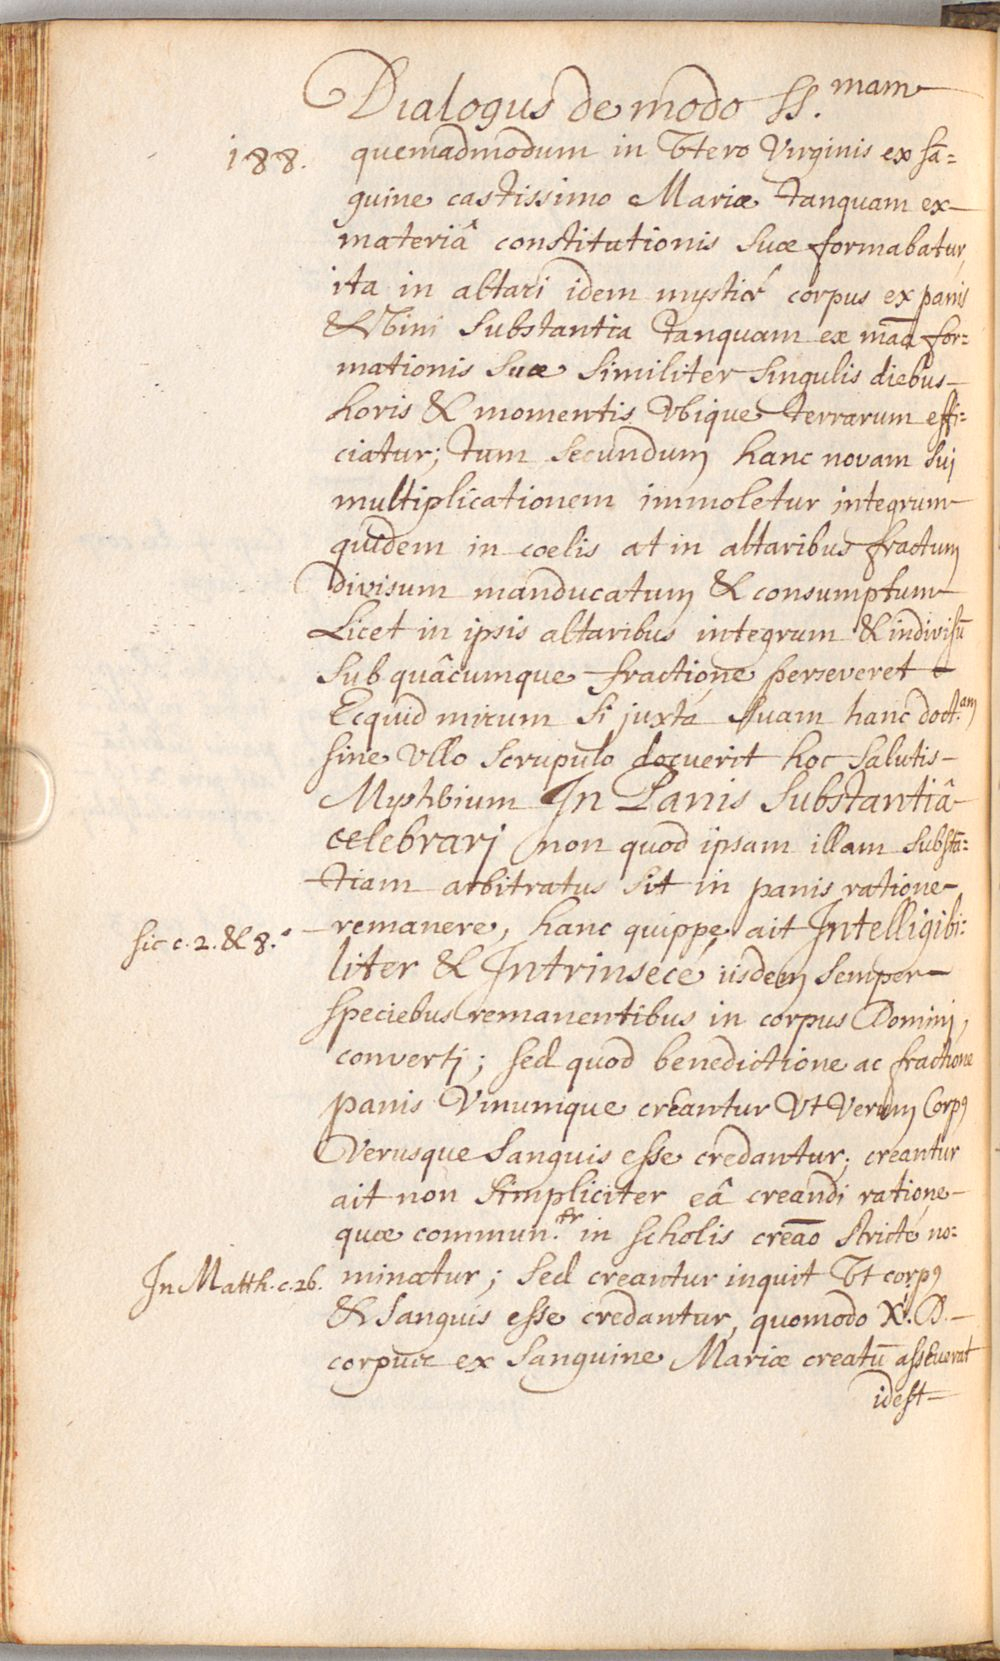 Dialogus de modo SS.mam
188. quemadmodum in Utero Virginis ex sā=
guine castissimo Mariæ tanquam ex
materiâ constitutionis suæ formabatur,
ita in altari idem mysticé corpus ex panis
& Vini substantia tanquam ex māā for=
mationis suæ similiter singulis diebus
horis & momentis Vbique terrarum effi=
ciatur; tum secundum hanc novam sui
multiplicationem immoletur integrum
quidem in coelis at in altaribus fractum
divisum manducatum & consumptum
Licet in ipsis altaribus integrum & indivisū
sub quâcumque fractione perseveret
Ecquid mirum si juxtà suam hanc doct.am
sine Vllo scrupulo docuerit hoc salutis
Mysterium In Panis substantiâ
celebrari non quod ipsam illam substā=
tiam arbitratus sit in panis ratione
sic c. 2. & 8. remanere, hanc quippe ait Intelligibi=
liter & Intrinsecé iisdem semper
speciebus remanentibus in corpus Domini
converti; sed quod benedictione ac fractione
panis Vinumque creantur Vt Verum Corpq
Verusque Sanguis esse credantur; creantur
ait non simpliciter eâ creandi ratione
quæ commun.tr in scholis creāo stricté no=
In Matth. c. 26. minatur; sed creantur inquit Vt corpq
& sanguis esse credantur, quomodo X.i D.
corpus ex sanguine Mariæ creatū asseverat
idest